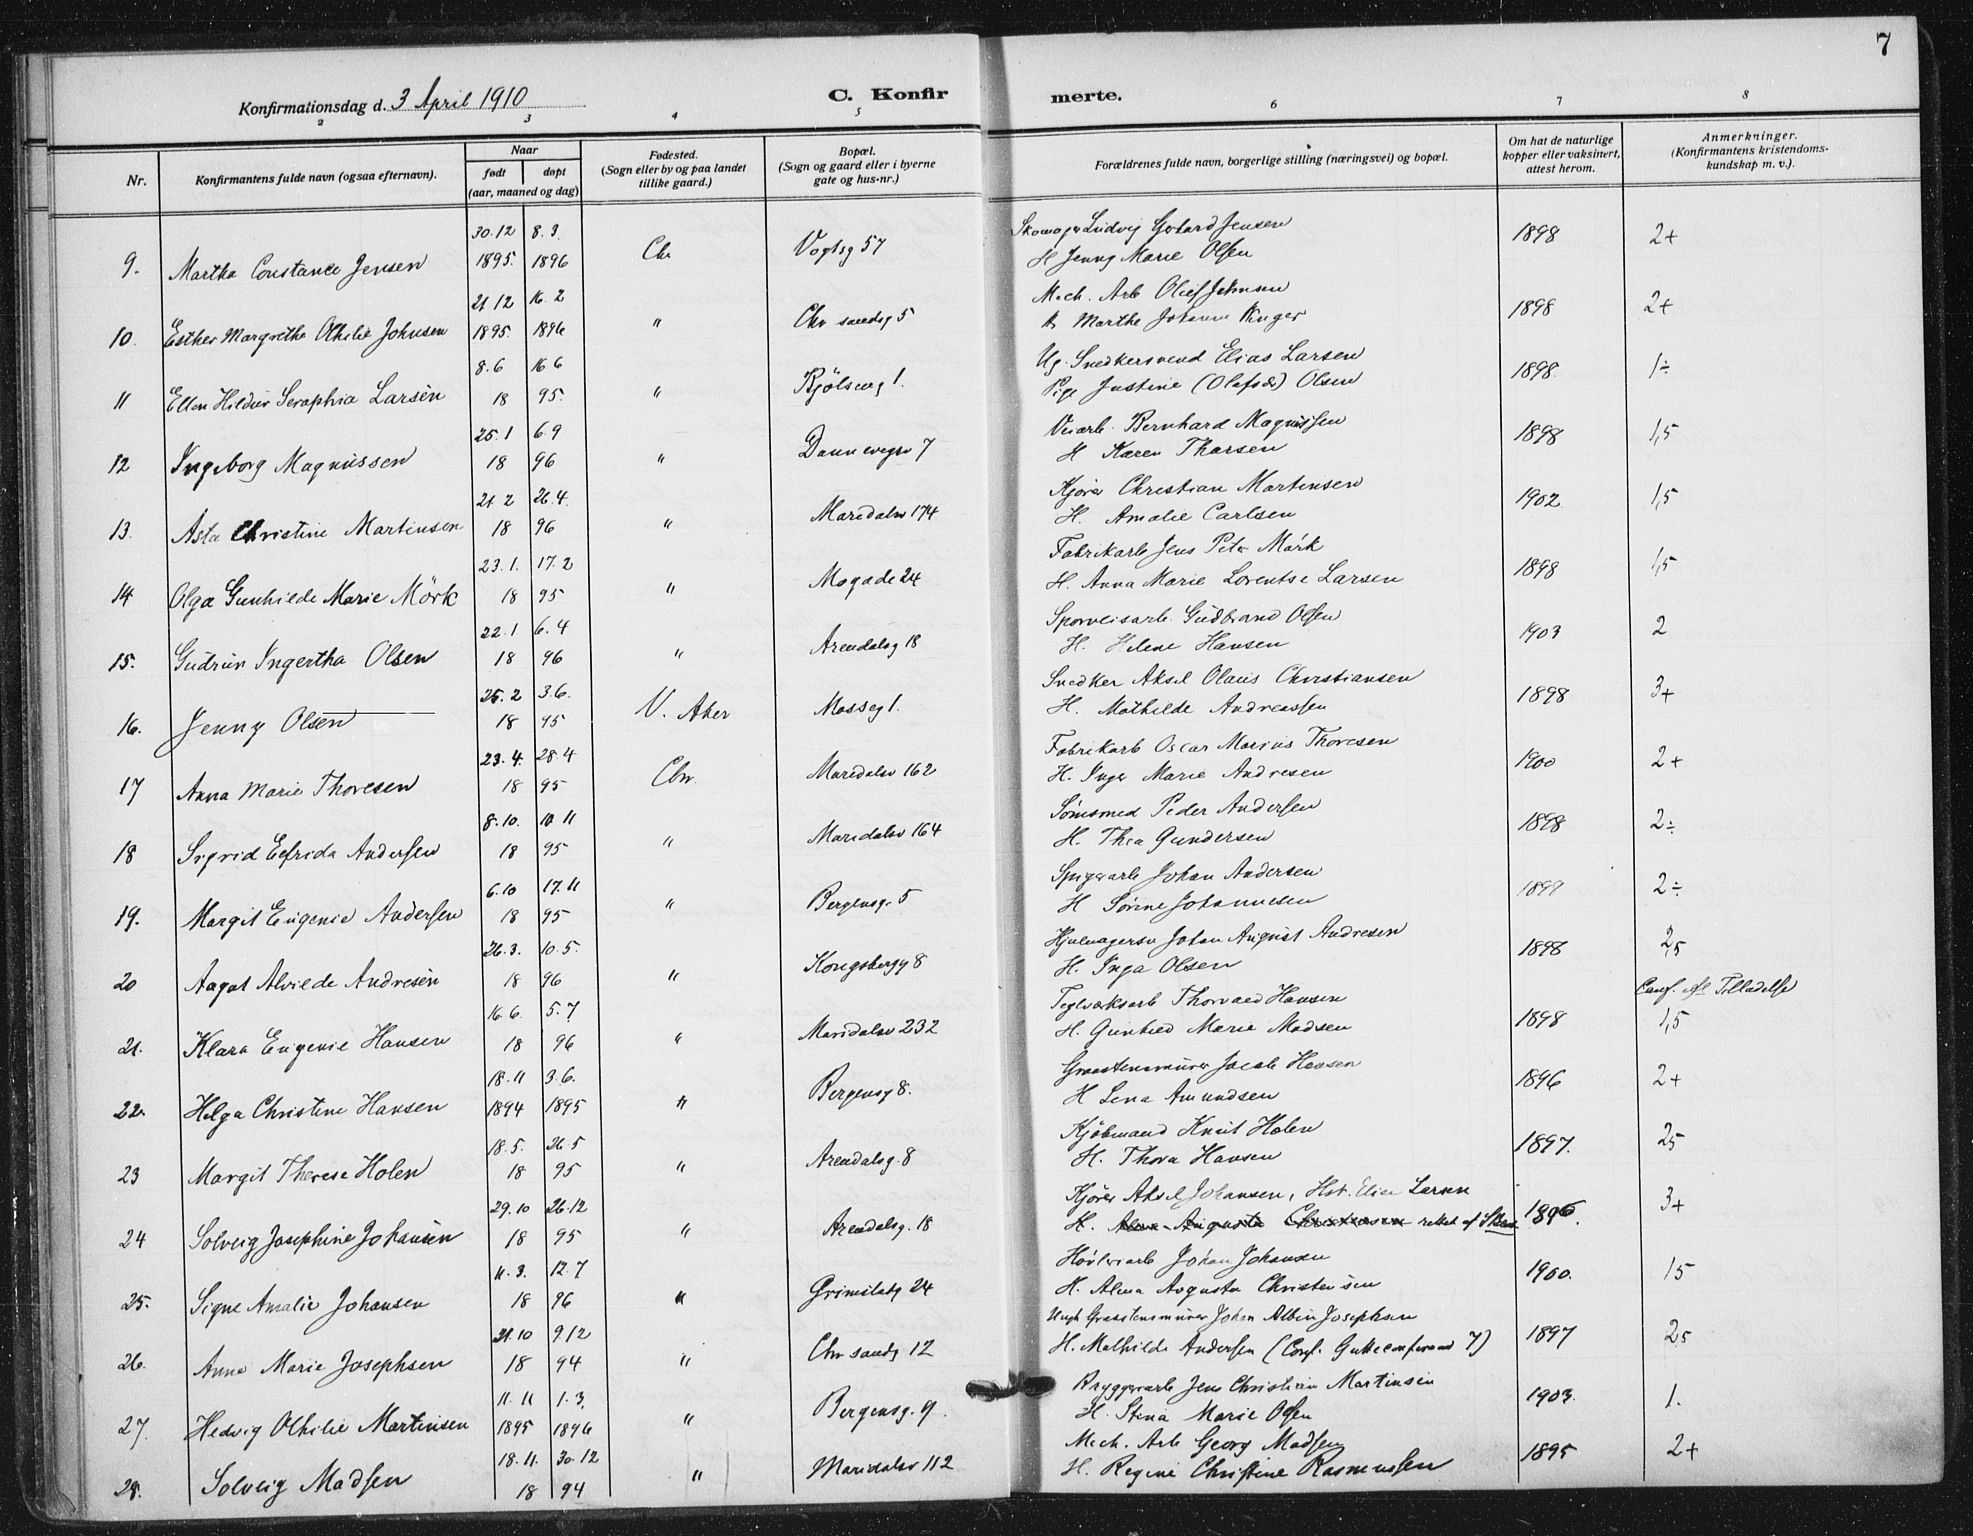 7
Konfirmationsdag d. 3 April 1910
C. Konfir
merte.
2 3 4 5 6 7 8
Nr.
Konfirmantens fulde navn (ogsaa efternavn).
Naar
født døpt
(aar, maaned og dag)
Fødested.
(Sogn eller by og paa landet
tillike gaard.)
Bopæl.
(Sogn og gaard eller i byerne
gate og hus-nr.)
Forældrenes fulde navn, borgerlige stilling (næringsvei) og bopæl.
Om hat de naturlige
kopper eller vaksinert,
attest herom.
Anmerkninger.
(Konfirmantens kristendoms-
kundskap m. v.).
30.12 8.3. Skomager Ludvig Gerhard Jensen
9. Martha Constance Jensen 1895. 1896 Chr Vogtsg 57 H Jenny Marie Olsen 1898 2+
21.12 16.2 Mech. Arb Oluf Johnsen
10. Esther Margrethe Othilie Johnsen 1895. 1896 " Chr sandsg 5 H Marthe Johanne 1898 2+
8.6 16.6 Ug. Snedkersvend Elias Larsen
11 Ellen Hildur Seraphia Larsen 18 95. " Kjölseng 1. Pige Justine (Olafsd) Olsen 1898. 1÷
25.1 6.9 Veiarb. Bernhard Magnussen
12 Ingeborg Magnussen 18 96 " Dannevegsv 7 H Karen Tharsen 1898 1,5
21.2 26.4. Kjörer Christian Martinsen
13. Asta Christine Martinsen 18 96 " Maridalsv 174 H. Amalie Carlsen 1902 1,5
23.1. 17.2 Fabrikarb Jens Peter Mörk
14 Olga Gunhilde Marie Mörk 18 95 " Mogade 24 H. Anna Marie Lorentse Larsen 1898 1,5
22.1 6.4 Sporveisarb. Gudbrand Olsen
15. Gudrun Ingertha Olsen 18 96 " Arendalsg 18 H. Helene Hansen 1903 2
25.2 3.6. Snedker Aksel Olaus Christiansen
16. Jenny Olsen 18 95 V. Aker Mosseg 1. H. Mathilde Andreassen 1898 3+
23.4. 28.4 Fabrikarb Oscar Marius Thoresen
17 Anna Marie Thoresen 18 95 Chr. Maridalsv 162 H. Inger Marie Andresen 1900 2+
8.10. 10.11 Sömsmed Peder Andersen
18 Sigrid Elfrida Andersen 18 95 " Maridalsv 164 H. Thea Gundersen 1898 2÷
6.10 17.11 Spigerarb Johan Andersen
19. Margit Eugenie Andersen 18 95 " Bergensg. 5 H Sörine Johannesen 1898 2÷
26.3. 10.5. Hjulmagersv Johan August Andresen
20 Aagot Alvilde Andresen 18 96 " Kongsbergg 8 H. Inga Olsen 1898 2,5
16.6. 5.7 Teglverksarb Thorvald Hansen Conf. eft Tilladelse
21. Klara Eugenie Hansen 18 96 " Maridalsv 232 H. Gunhild Marie Madsen 1898 1,5
18.11 3.6. Graastensmurer Jacob Hansen
22. Helga Christine Hansen 1894 1895 " Bergensg 8. H Lena Amundsen 1896 2+
18.5. 26.5 Kjöbmand Knut Holen
23 Margit Therese Holen 18 95 " Arendalsg. 8 H. Thora Hansen 1897. 25
29.10 26.12 Kjörer Aksel Johansen, Hst. Elise Larsen
24 Solveig Josephine Johansen 18 95 " Arendalsg. 18 H. Alma Augusta Christensen rettet af 1896. 3+
11.3. 12.7 Høvleriarb Johan Johansen
25. Signe Amalie Johansen 18 96 " Grimstadg 24 H. Alma Augusta Christensen 1900. 15
21.10 9.12 Ungk Graastensmurer Johan Albin Josephsen
26. Anna Marie Josephsen 18 94 " Chr sandg 12 H. Mathilde Andersen (Conf. Gutteconfirmand 7) 1897 25
11.11 1.3. Bryggeriarb Jens Christian Martinsen
27. Hedvig Othilie Martinsen 1895 1896 " Bergensg. 9. H. Stina Marie Olsen 1903. 1.
18.11. 30.12 Mech. Arb Georg Madsen
28. Solveig Madsen 18 94 " Maridalsv 112 H. Regine Christine Rasmussen 1895 2+